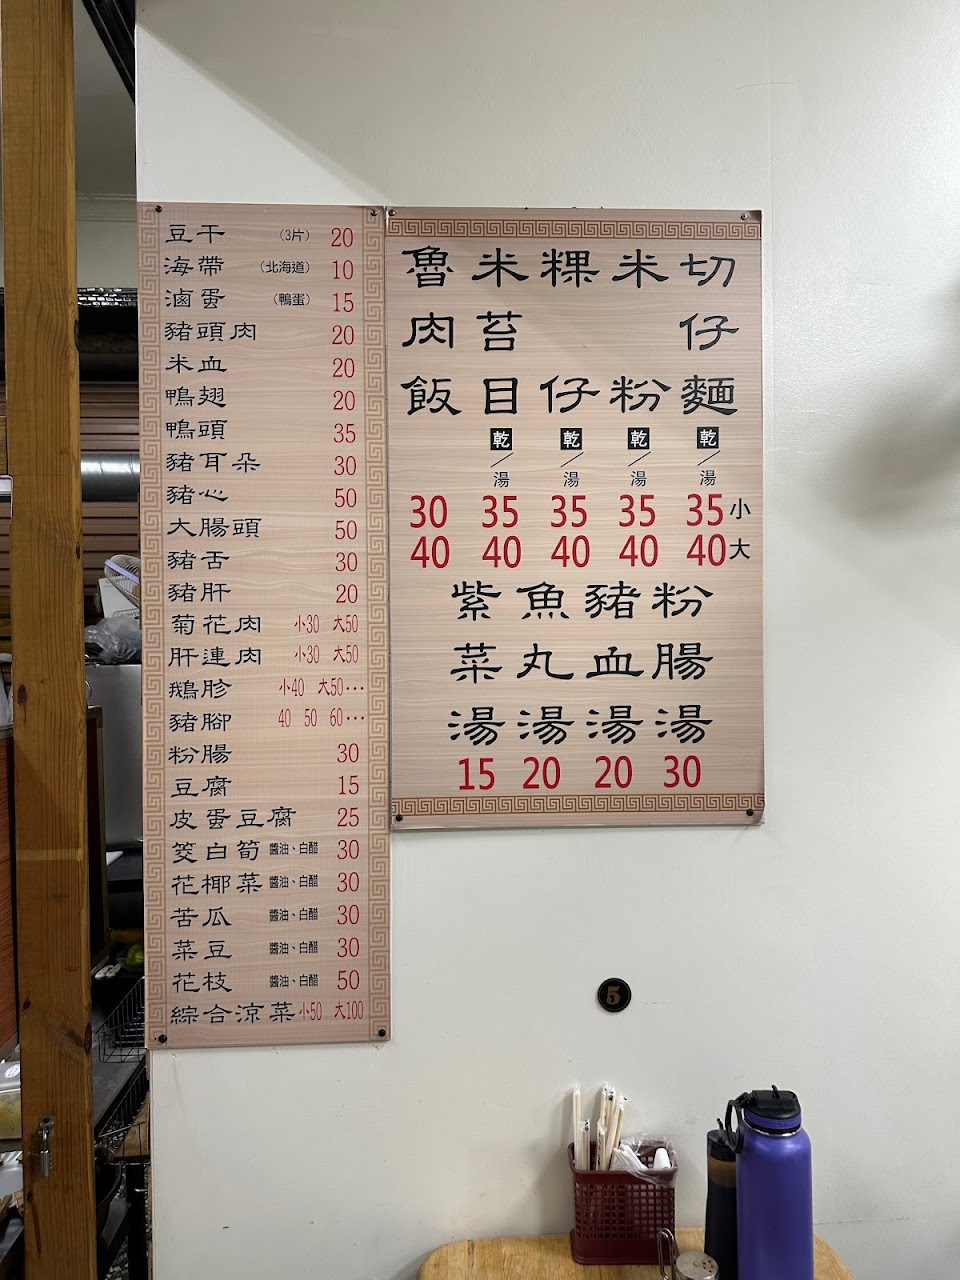 豆干 (3片) 20
海帶 (北海道) 10
滷蛋 (鴨蛋) 15
豬頭肉 20
米血 20
鴨翅 20
鴨頭 35
豬耳朵 30
豬心 50
大腸頭 50
豬舌 30
豬肝 20
菊花肉 小30 大50
肝連肉 小30 大50
鵝胗 小40 大50···
豬腳 40 50 60···
粉腸 30
豆腐 15
皮蛋豆腐 25
筊白筍 醬油、白醋 30
花椰菜 醬油、白醋 30
苦瓜 醬油、白醋 30
菜豆 醬油、白醋 30
花枝 醬油、白醋 50
綜合涼菜 小50 大100
切仔麵 乾/湯 35小 40大
米粉 乾/湯 35 40
粿仔 乾/湯 35 40
米苔目 乾/湯 35 40
魯肉飯 30 40
粉腸湯 30
豬血湯 20
魚丸湯 20
紫菜湯 15
5